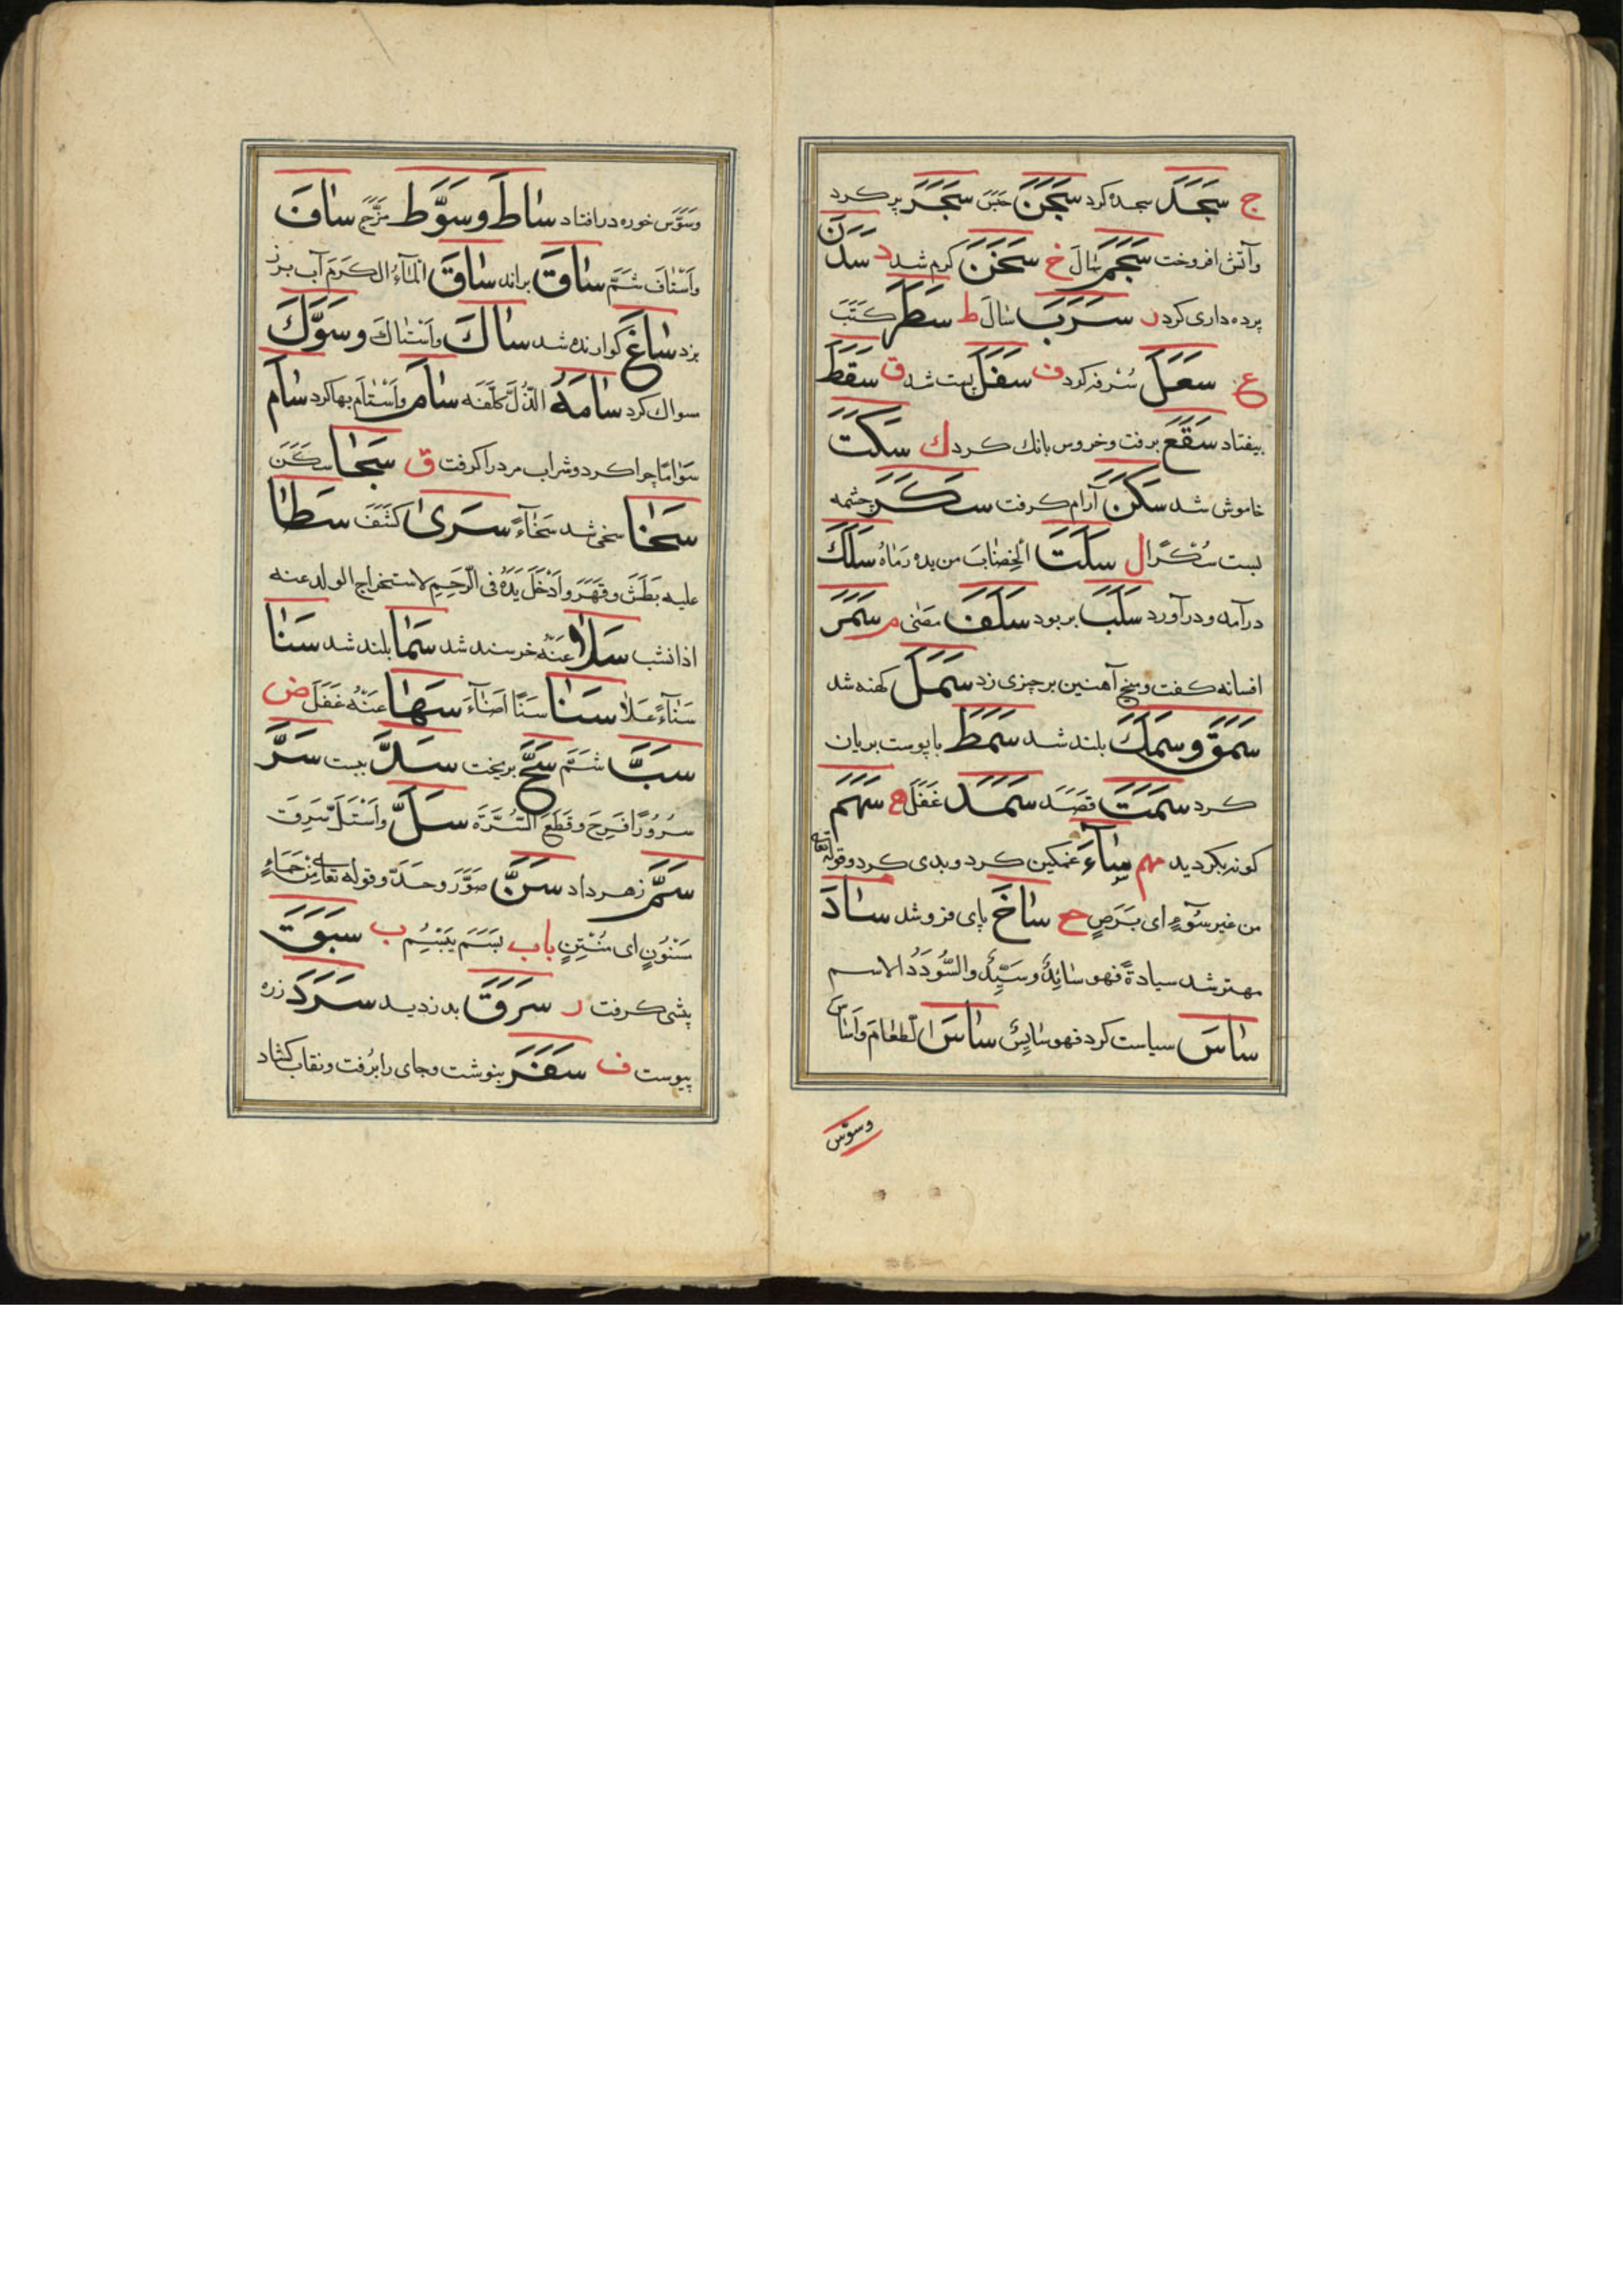 ج سَجَدَ سجده کرد سَجَنَ حَبَسَ سَجَرَ پر کرد
وآتش افروخت سَجَمَ سَالَ خ سَخَنَ کرم شد د سَدَنَ
پرده داری کرد ر سَرَبَ سَالَ ط سَطَرَ کَتَبَ
ع سَعَلَ سُرفه کرد ف سَفَلَ پست شد ق سَقَطَ
بیفتاد سَقَعَ برفت وخروس بانك کرد ك سَكَتَ
خاموش شد سَكَنَ آرام کرفت سَكَرَ چشمه
ببست سُكْرًا ل سَلَتَ الْخِضَابَ من یده رَمَاهُ سَلَكَ
درآمد ودرآورد سَلَبَ بربود سَلَفَ مضی م سَمَرَ
افسانه کفت ومیخ آهنین بر چیزی زد سَمَلَ کهنه شد
سَمَقَ وسَمَكَ بلند شد سَمَطَ با پوست بریان
کرد سَمَتَ قَصَدَ سَمَدَ غَفَلَ ه سَهَمَ
کونه بکردید مهم سَاءَ غمکین کرد وبدی کرد وقوله تعالی
من غیر سُوٓءٍ ای بَرَصٍ ح سَاخَ پای فرو شد سَادَ
مهتر شد سیادةً فهو سَائِدٌ وسَیِّدٌ والسُّودَدُ الاسم
سَاسَ سیاست کرد فهو سَایِسٌ سَاسَ الطعَامَ وأَسَاسَ
وسوّس
وَسَوَّسَ خوره درافتاد سَاطَ وسَوَّطَ مَزَجَ سَافَ
وَاَسْتَافَ شَمَّ سَاقَ براند سَاقَ الْمَآءَ الکَرْمَ آب برز
بزد سَاغَ کوارنده شد سَاكَ واَسْتَاكَ وسَوَّكَ
سواك کرد سَامَهُ الذُّلَّ کَلَّفَهُ سَامَ واَسْتَامَ بها کرد سَامَ
سَوَامًا چرا کرد وشراب مرد را کرفت ق سَجَا سَکَنَ
سَخَا سخی شد سَخَاءً سَرَى کَشَفَ سَطَا
علیه بَطَشَ وقَهَرَ واَدْخَلَ یَدَهُ فی الرَّحِمِ لاستخراج الولد عنه
اذا نشب سَلَا عَنْهُ خرسند شد سَمَا بلند شد سَنَا
سَنَآءً عَلَا سَنَا سَنًا اَضَآءَ سَهَا عَنْهُ غَفَلَ ض
سَبَّ شَتَمَ سَحَّ بریخت سَدَّ ببست سَرَّ
سُرُورًا فَرِحَ وقَطَعَ السُّرَّةَ سَلَّ واَسْتَلَّ سَرِقَ
سَمَّ زهر داد سَنَّ صَوَّرَ وحَدَّ وقوله تعالی مِنْ حَمَاءٍ
مَسْنُونٍ ای مُنْتِنٍ باب بَسَمَ یَبْسِمُ ب سَبَقَ
پیشی کرفت ر سَرَقَ بدزدید سَرَدَ زره
پیوست ف سَفَرَ بنوشت وجای را برُفت ونقاب کشاد